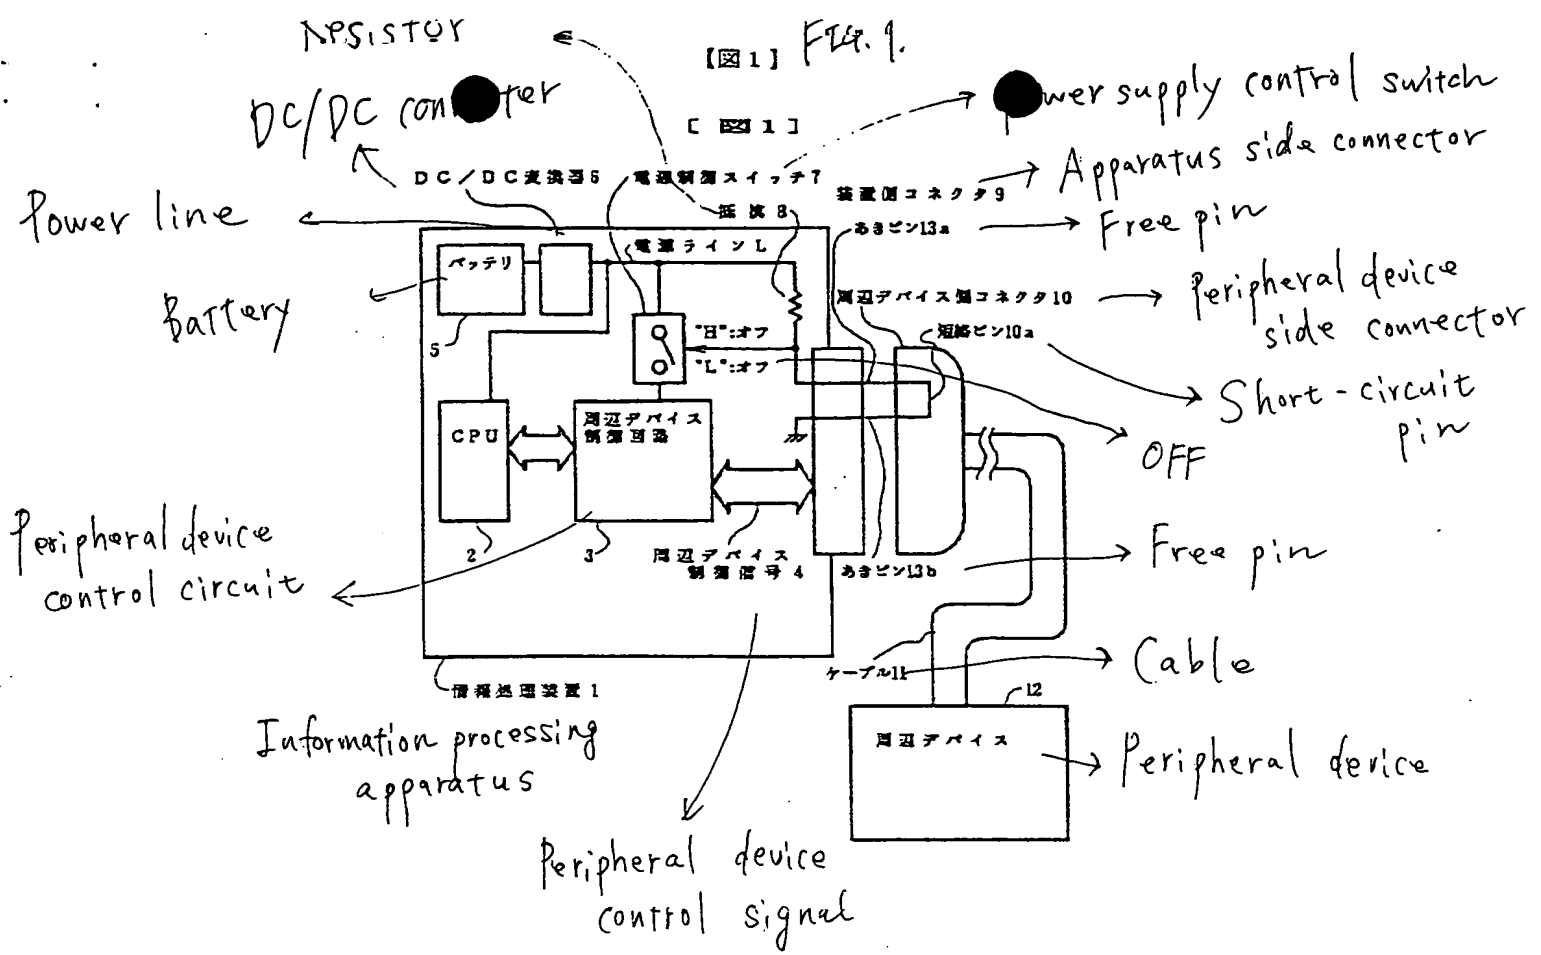 resistor
【図1】 FIG. 1.
DC/DC con●ter
●wer supply control switch
[図1]
Apparatus side connector
DC/DC変換器6
電源制御スイッチ7
装置側コネクタ9
Power line
抵抗8
あきピン13a
Free pin
電源ラインL
バッテリ
Battery
5
周辺デバイス側コネクタ10
Peripheral device
side connector
短絡ピン10a
"H":オフ
"L":オフ
Short-circuit
pin
OFF
CPU
周辺デバイス
制御回路
2
3
周辺デバイス
制御信号4
あきピン13b
Free pin
Peripheral device
control circuit
ケーブル11
Cable
情報処理装置1
12
Information processing
apparatus
周辺デバイス
Peripheral device
Peripheral device
control signal